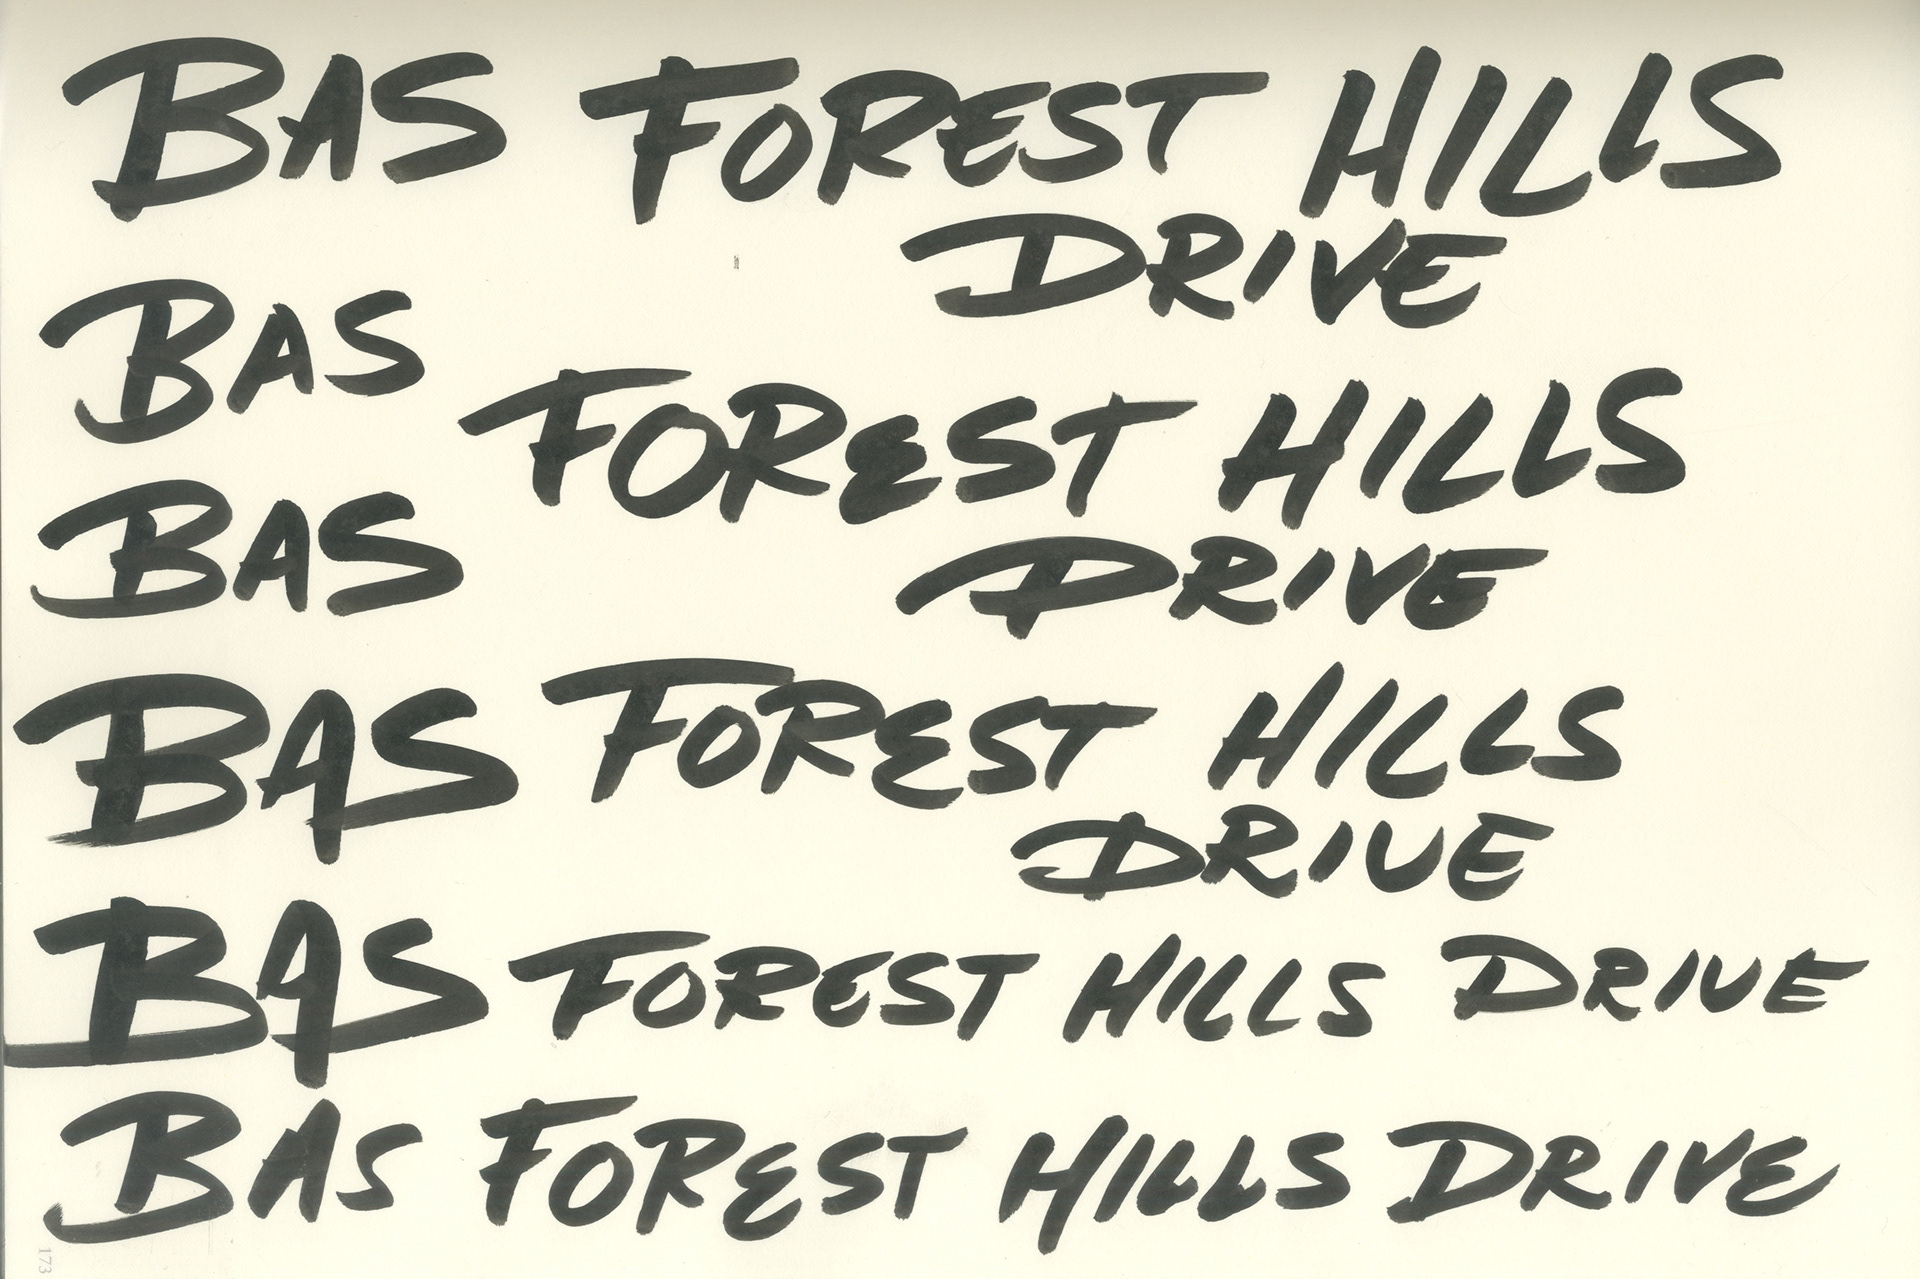 BAS FOREST HILLS
DRIVE
BAS
FOREST HILLS
BAS
DRIVE
BAS FOREST HILLS
DRIVE
BAS FOREST HILLS DRIVE
BAS FOREST HILLS DRIVE
173